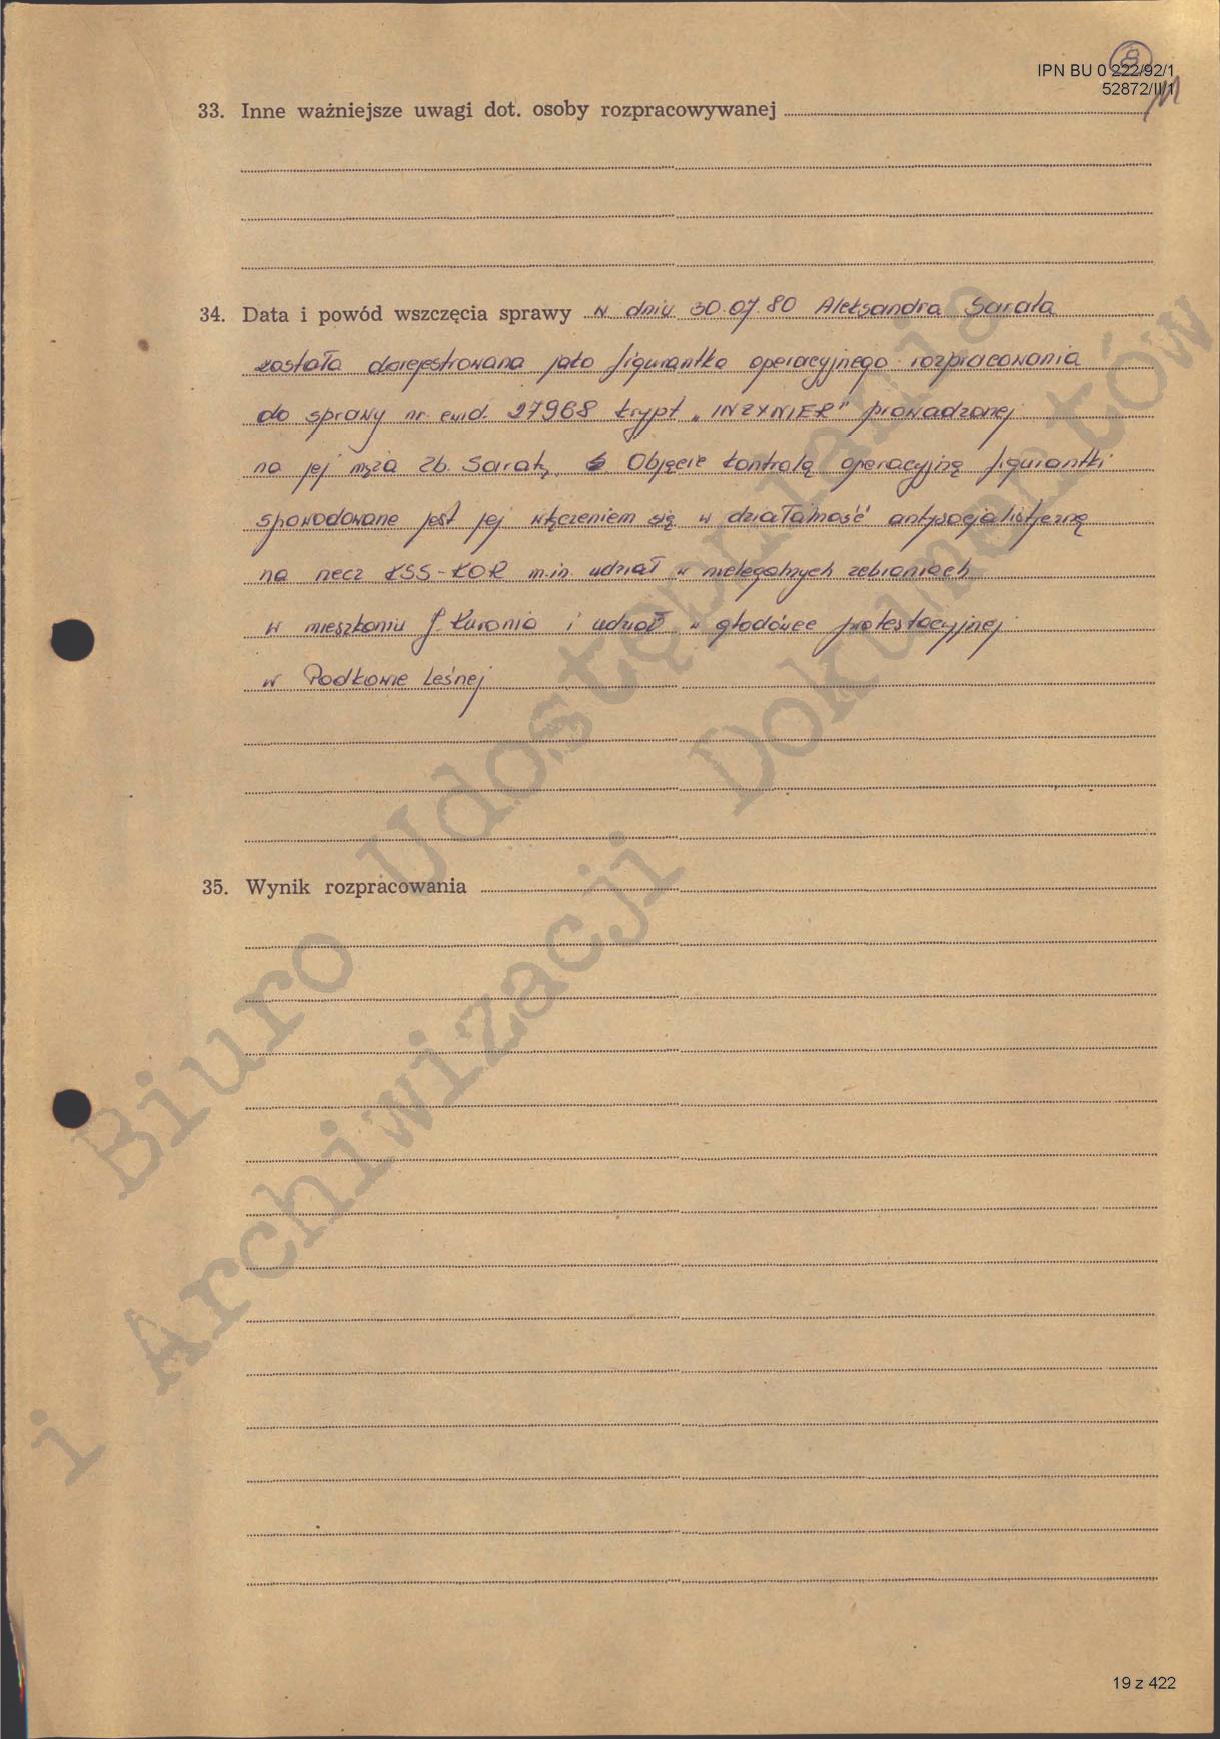 8
IPN BU 0 222/92/1
52872/II/1
33. Inne ważniejsze uwagi dot. osoby rozpracowywanej
34. Data i powód wszczęcia sprawy w dniu 30.07.80 Aleksandra Sarata
została dorejestrowana jako figurantka operacyjnego rozpracowania
do sprawy nr. ewid. 27968 krypt. „INŻYNIER" prowadzonej
na jej męża Zb. Saratę. Objęcie kontrolą operacyjną figurantki
spowodowane jest jej włączeniem się w działalność antysocjalistyczną
na rzecz KSS-KOR m.in. udział w nielegalnych zebraniach
w mieszkaniu J. Kuronia i udział w głodówce protestacyjnej
w Podkowie Leśnej
35. Wynik rozpracowania
Biuro Udostępniania
i Archiwizacji Dokumentów
19 z 422